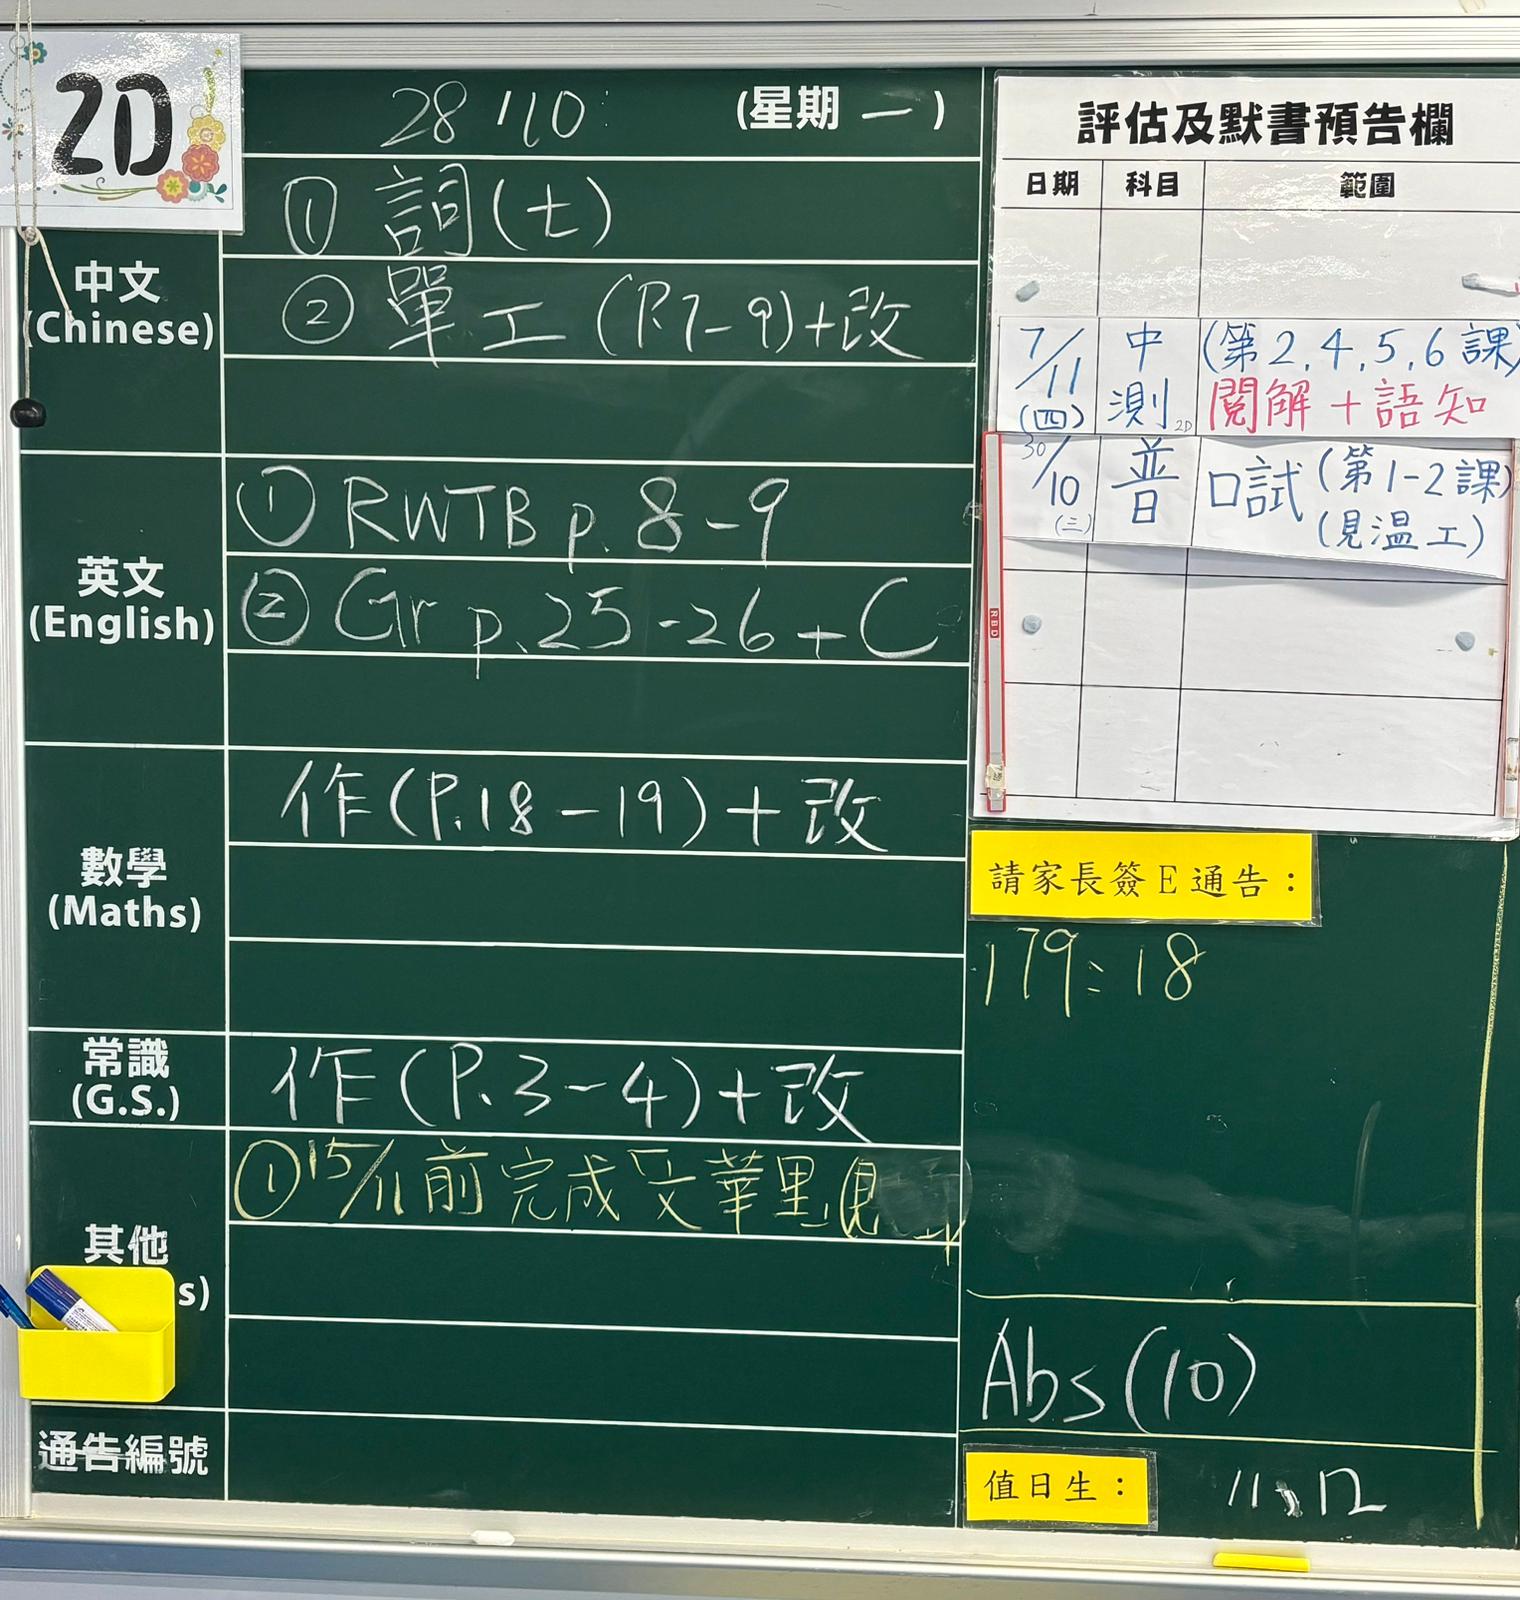 2D
28/10 (星期一)
中文
(Chinese)
① 詞(七)
② 單工(P.7-9)+改
英文
(English)
① RWTB p. 8-9
② Gr p.25-26 + C
數學
(Maths)
作(P.18-19)+改
常識
(G.S.)
作(P.3-4)+改
其他
s)
①15/11前完成「文華里」
通告編號
評估及默書預告欄
日期 科目 範圍
7/11 (四) 中測 2D (第2,4,5,6課) 閱解+語知
30/10 (三) 普 口試(第1-2課) (見溫工)
RBD
請家長簽E通告:
179:18
Abs(10)
值日生:
11、12